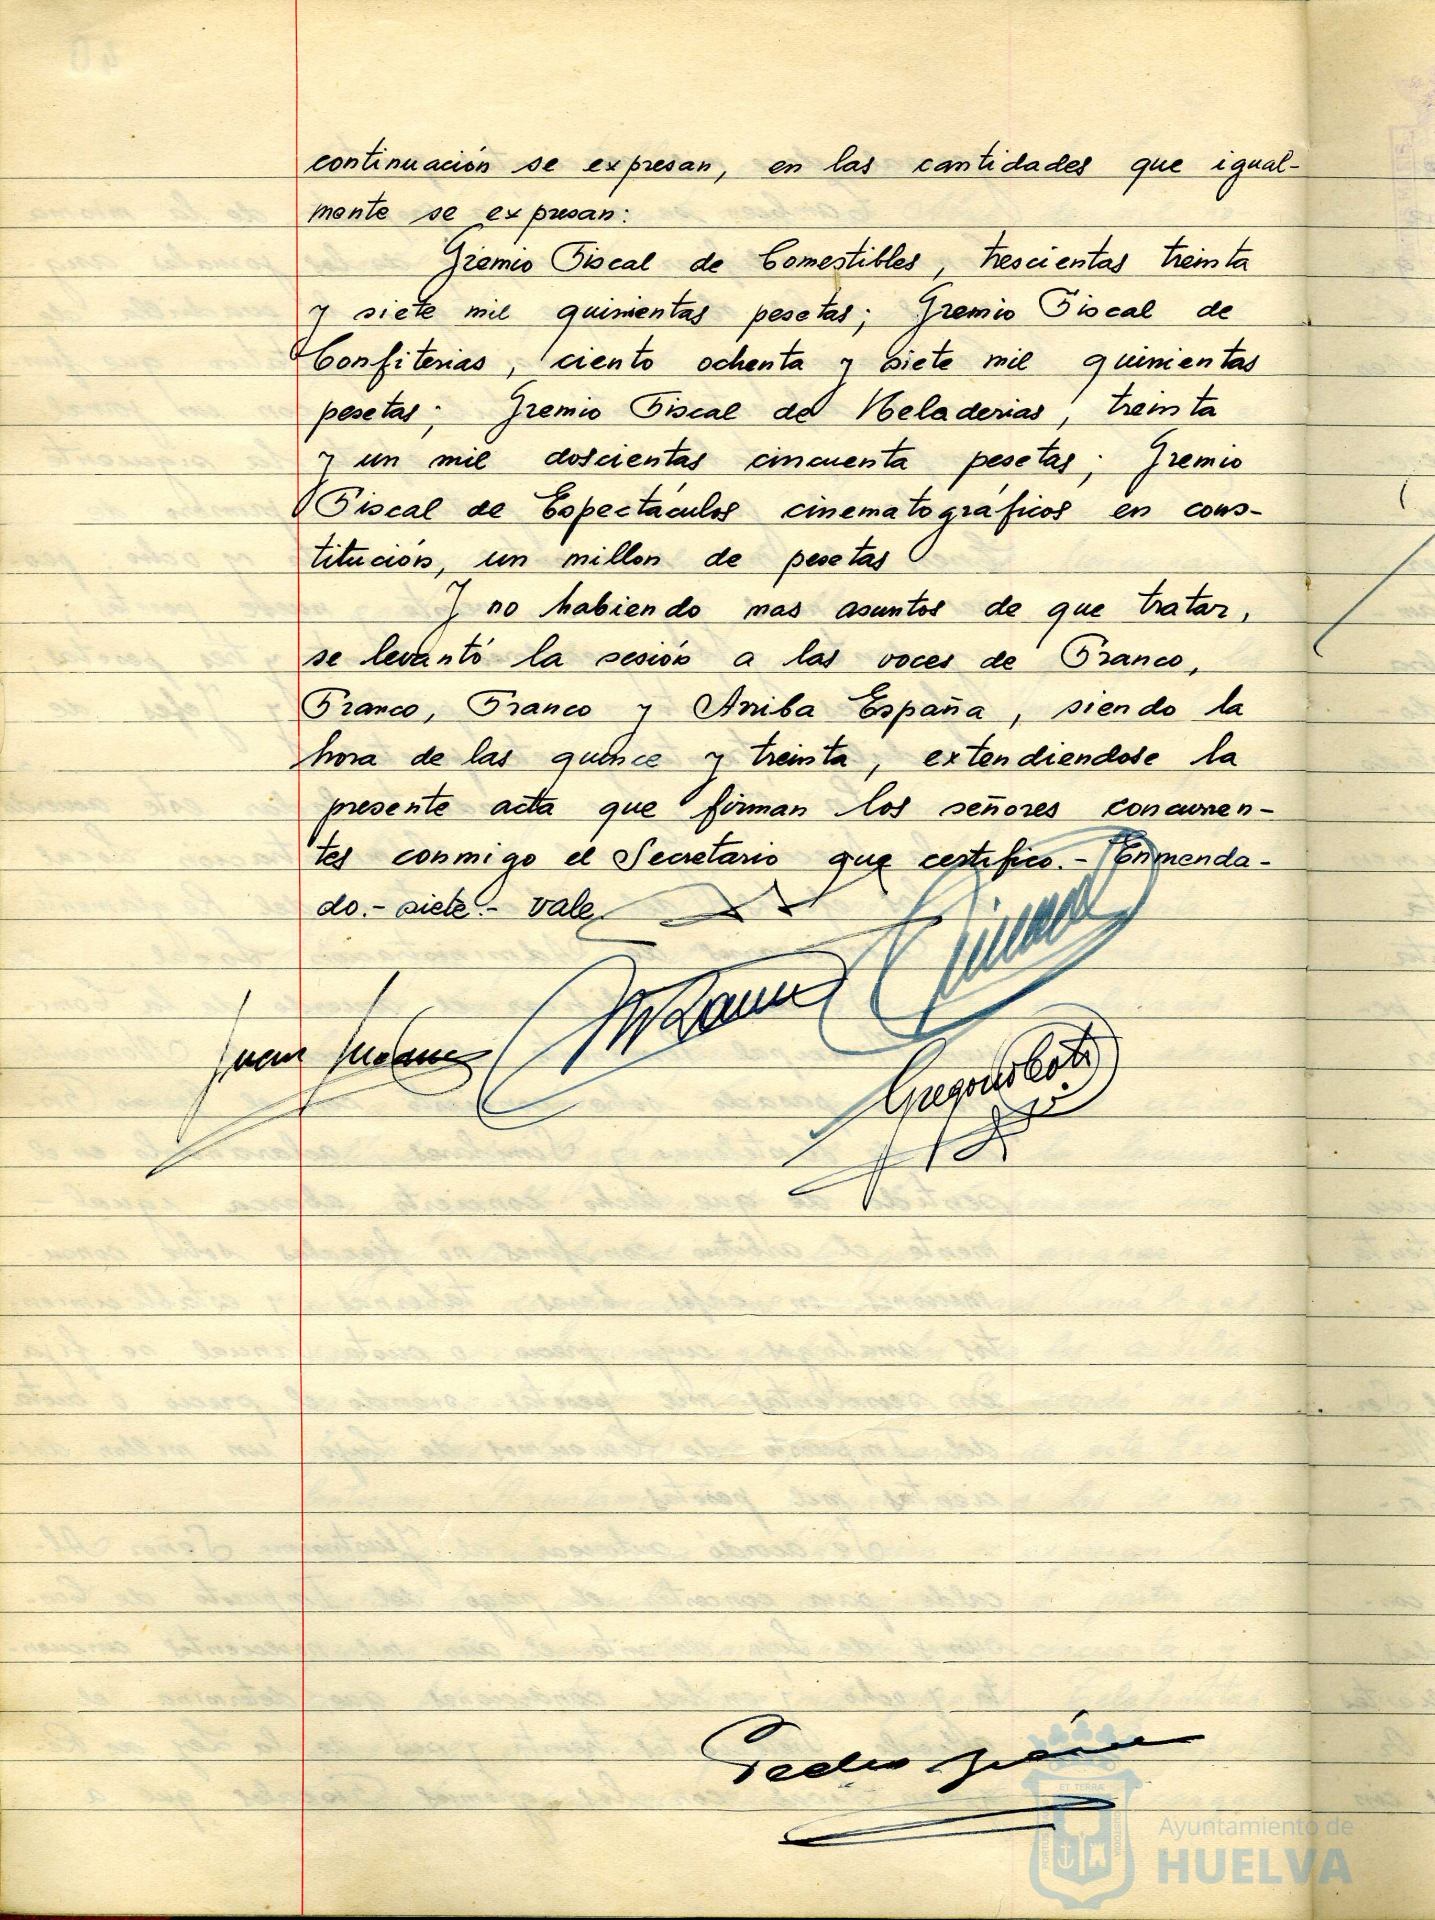 continuación se expresan, en las cantidades que igual-
mente se expresan:
Gremio Fiscal de Comestibles, trescientas treinta
y siete mil quinientas pesetas; Gremio Fiscal de
Confiterias, ciento ochenta y siete mil quinientas
pesetas; Gremio Fiscal de Heladerias, treinta
y un mil doscientas cincuenta pesetas; Gremio
Fiscal de Espectáculos cinematográficos en cons-
titución, un millon de pesetas
Y no habiendo mas asuntos de que tratar,
se levantó la sesión a las voces de Franco,
Franco, Franco y Arriba España, siendo la
hora de las quince y treinta, extendiendose la
presente acta que firman los señores concurren-
tes conmigo el Secretario que certifico.- Enmenda-
do.- siete.- vale.
Juan
Gregorio
Pedro
ET TERRAE
PORTUS MARIS
CUSTODIA
Ayuntamiento de
HUELVA